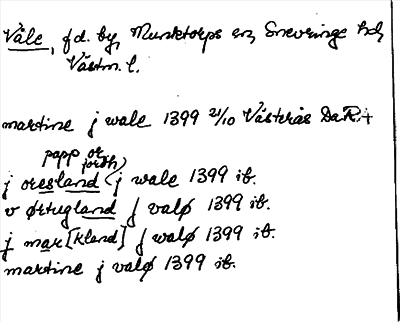 Våle, f d. by, Munktorps sn, Snevringe hd,
Västm. l.
martine j wale 1399 21/10 Västerås DaR.+
papp or
jorth)
j oresland (j wale 1399 ib.
v ørtugland j valø 1399 ib.
j mar[kland] j valø 1399 ib.
martine j valø 1399 ib.